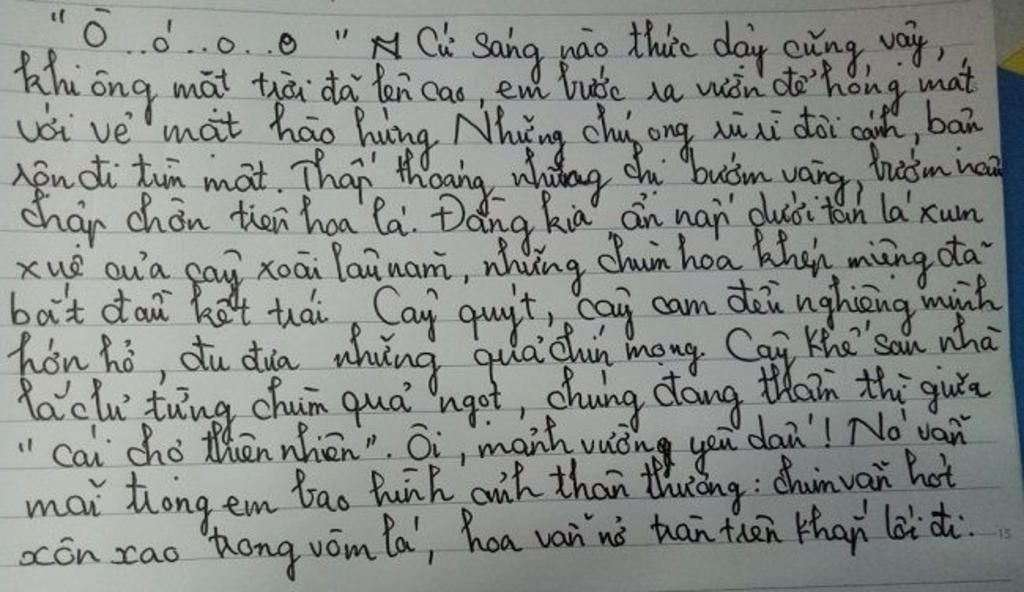 "Ò...ó...o...o" Cứ sáng nào thức dậy cũng vậy,
khi ông mặt trời đã lên cao, em bước ra vườn để hóng mát
với vẻ mặt hào hứng Những chú ong rù rì đôi cánh, bận
rộn đi tìm mật. Thấp thoáng những chị bướm vàng, bướm nâu
chập chờn trên hoa lá. Đằng kia ẩn nấp dưới tán lá xum
xuê của cây xoài lâu năm, những chùm hoa khép miệng đã
bắt đầu kết trái Cây quýt, cây cam đều nghiêng mình
hớn hở, đu đưa những quả chín mọng. Cây khế sau nhà
lắc lư từng chùm quả ngọt, chúng đang thầm thì giữa
"cái chợ thiên nhiên". Ôi, mảnh vườn yêu dấu! Nó vẫn
mãi trong em bao hình ảnh thân thương: chim vẫn hót
xôn xao trong vòm lá, hoa vẫn nở tràn trên khắp lối đi.
15